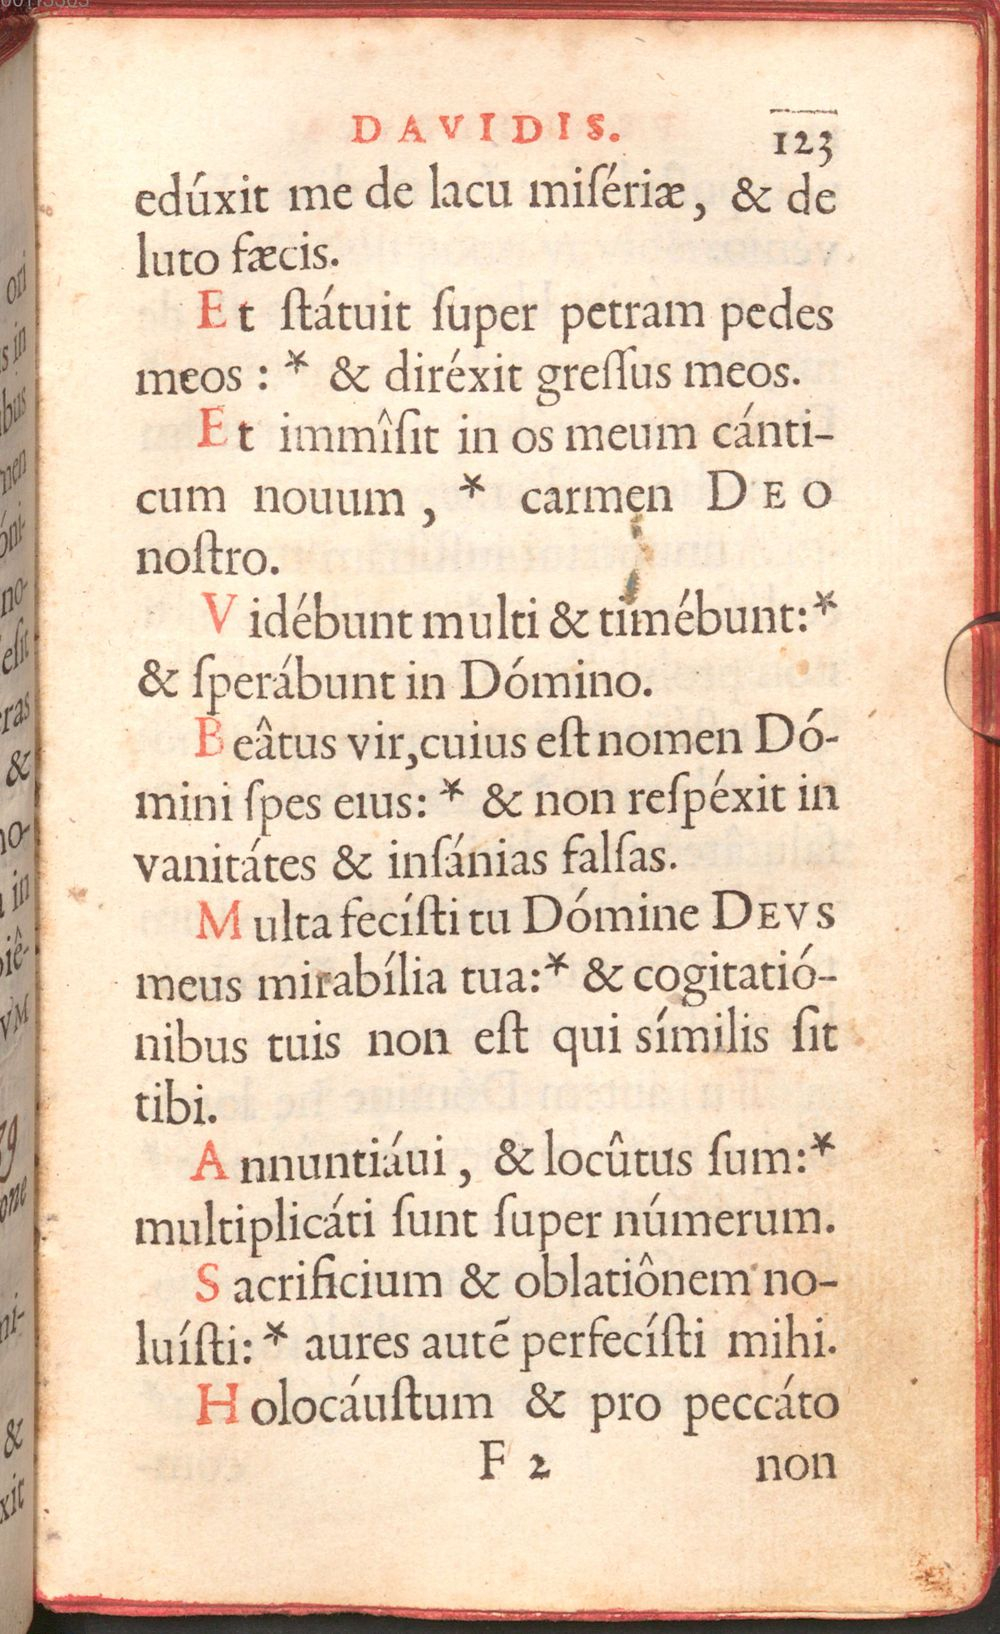 DAVIDIS. 123
edúxit me de lacu miſériæ, & de
luto fæcis.
Et ſtátuit ſuper petram pedes
meos : * & diréxit greſſus meos.
Et immîſit in os meum cánti-
cum nouum, * carmen DEO
noſtro.
Vidébunt multi & timébunt:*
& ſperábunt in Dómino.
Beâtus vir,cuius eſt nomen Dó-
mini ſpes eius: * & non reſpéxit in
vanitátes & inſánias falſas.
Multa fecíſti tu Dómine DEVS
meus mirabília tua:* & cogitatió-
nibus tuis non eſt qui símilis ſit
tibi.
Annuntiáui, & locûtus ſum:*
multiplicáti ſunt ſuper númerum.
Sacrificium & oblatiônem no-
luíſti: * aures autē perfecíſti mihi.
Holocáuſtum & pro peccáto
F 2 non